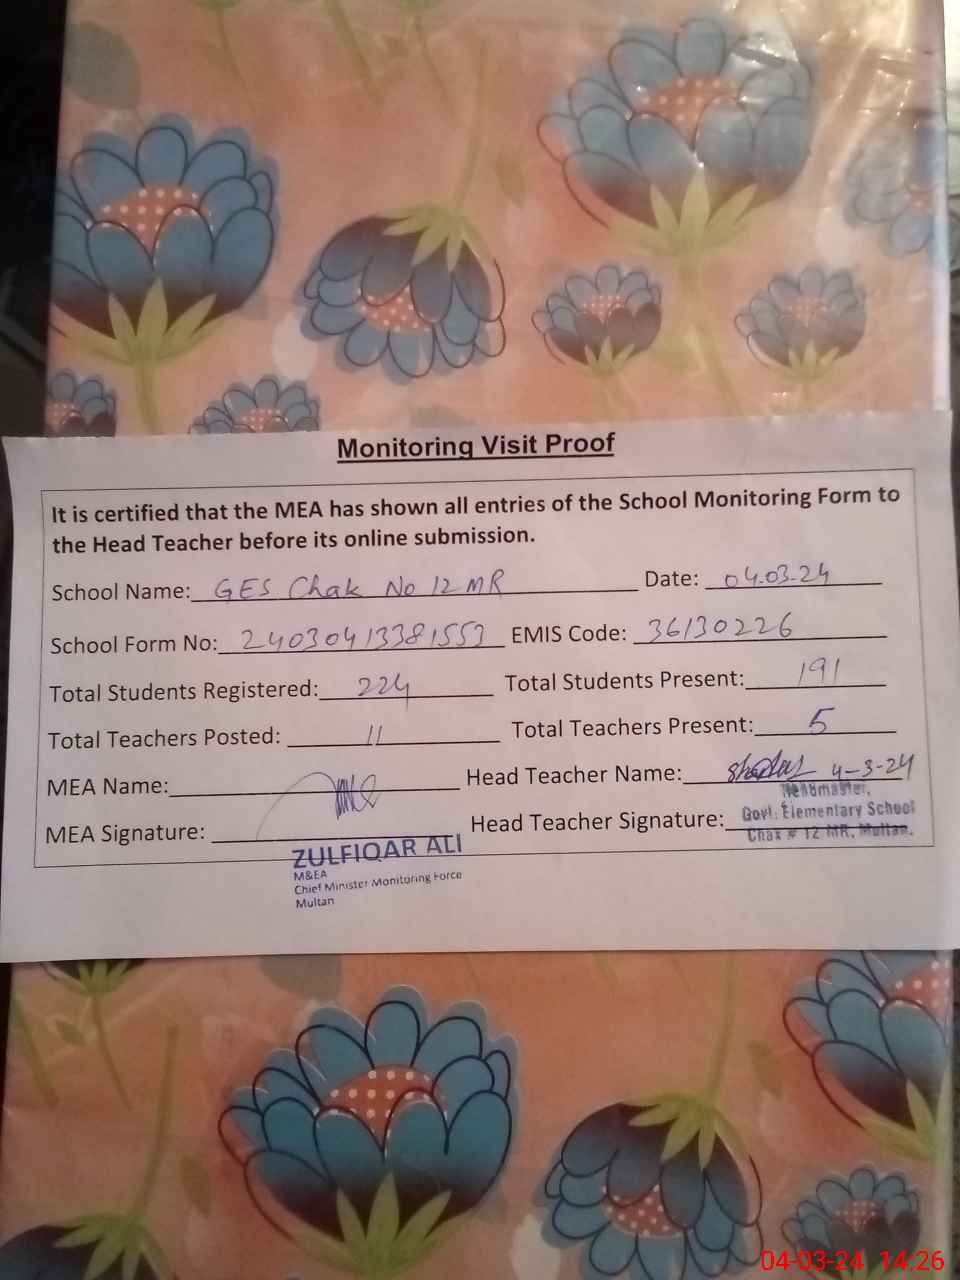 Monitoring Visit Proof
It is certified that the MEA has shown all entries of the School Monitoring Form to
the Head Teacher before its online submission.
School Name: GES Chak No 12 MR Date: 04.03.24
School Form No: 24030413381553 EMIS Code: 36130226
Total Students Registered: 224 Total Students Present: 191
Total Teachers Posted: 11 Total Teachers Present: 5
MEA Name: Head Teacher Name: 4-3-24
Headmaster,
MEA Signature: Head Teacher Signature: Govt: Elementary School
Chak # 12 MR, Multan.
ZULFIQAR ALI
M&EA
Chief Minister Monitoring Force
Multan
04-03-24 14:26